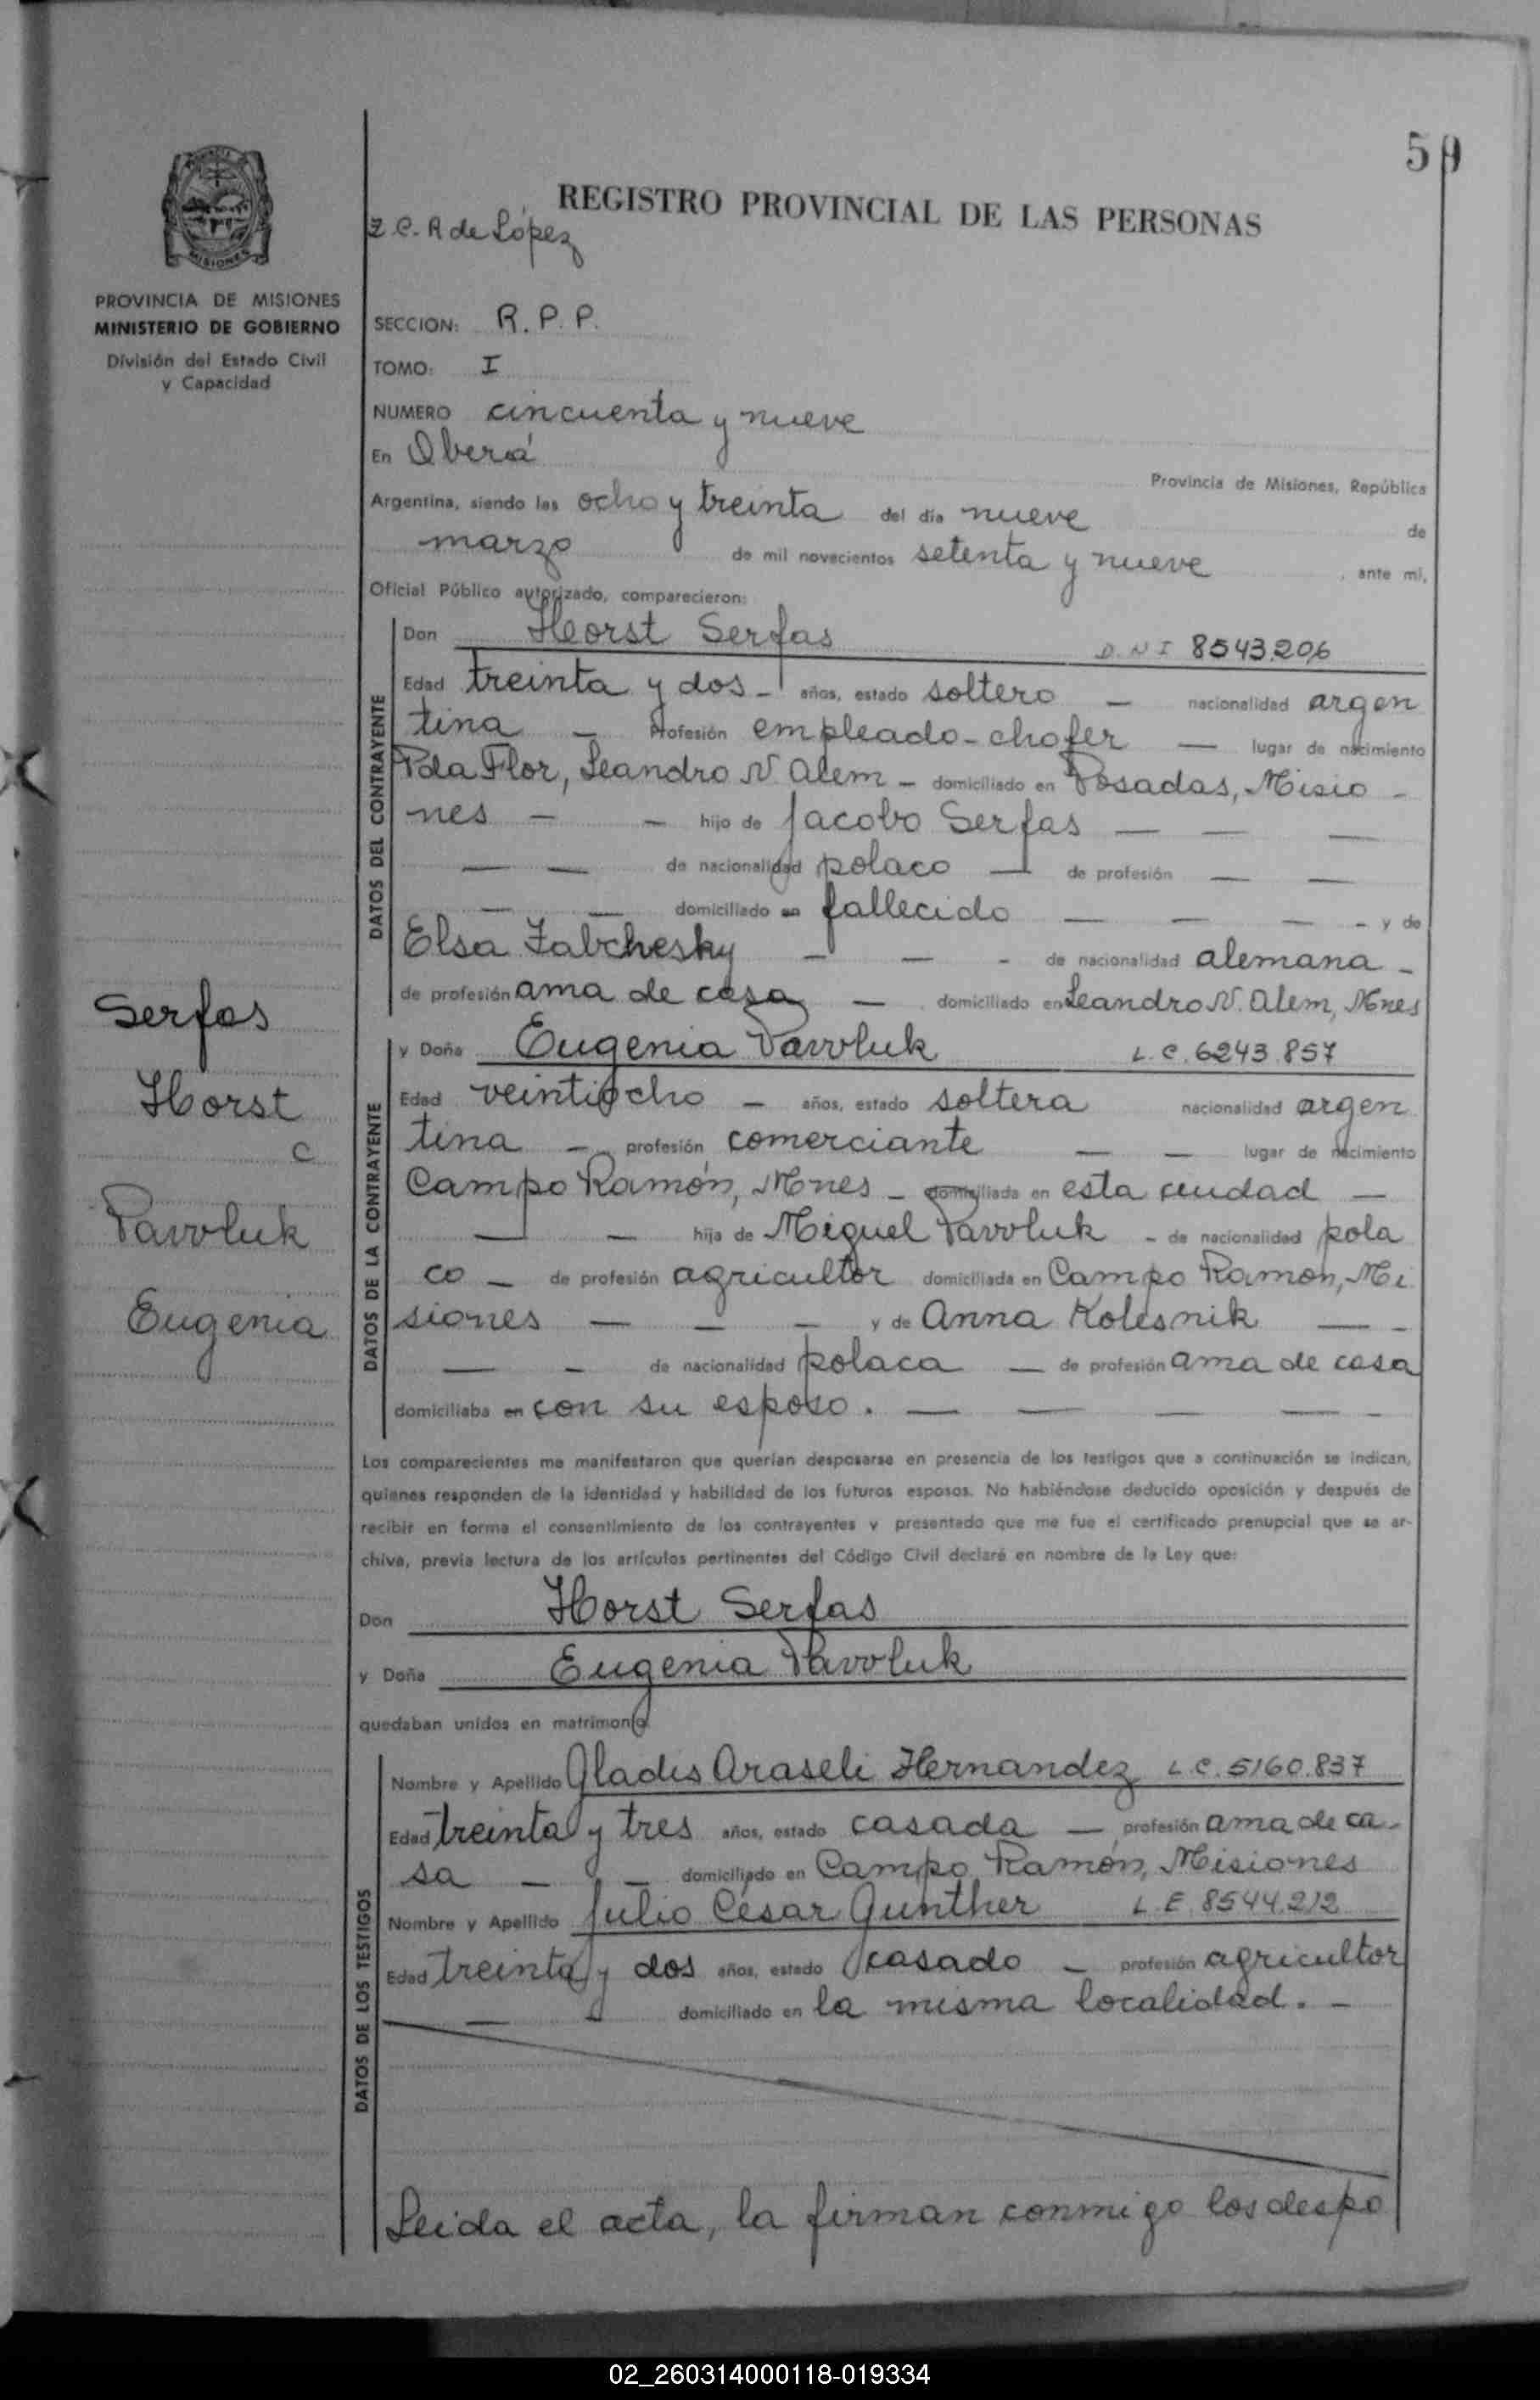 59
REGISTRO PROVINCIAL DE LAS PERSONAS
Z.C. R de López
PROVINCIA DE MISIONES
MINISTERIO DE GOBIERNO
División del Estado Civil
y Capacidad
SECCION: R.P.P.
TOMO: I
NUMERO cincuenta y nueve
En Oberá
Provincia de Misiones, República
Argentina, siendo las ocho y treinta del día nueve de
marzo de mil novecientos setenta y nueve, ante mí,
Oficial Público autorizado, comparecieron:
DATOS DEL CONTRAYENTE
Don Horst Serfas D.N.I 8543.206
Edad treinta y dos - años, estado soltero - nacionalidad argen
tina - Profesión empleado-chofer - lugar de nacimiento
Pda Flor, Leandro N. Alem - domiciliado en Posadas, Misio -
nes - - hijo de Jacobo Serfas - - -
- - de nacionalidad polaco - de profesión - -
- - domiciliado en fallecido - - - - y de
Elsa Zabchesky - - - de nacionalidad alemana -
de profesión ama de casa - domiciliado en Leandro N. Alem, Mnes
DATOS DE LA CONTRAYENTE
y Doña Eugenia Pavvluk L.C. 6243.857
Edad veintiocho - años, estado soltera nacionalidad argen
tina - profesión comerciante - - lugar de nacimiento
Campo Ramón, Mnes - domiciliada en esta ciudad -
- - hija de Miguel Pavvluk - de nacionalidad pola
co - de profesión agricultor domiciliada en Campo Ramón, Mi
siones - - - y de Anna Kolesnik - -
- - de nacionalidad polaca - de profesión ama de casa
domiciliaba en con su esposo. - - - - -
Serfas
Horst
c
Pavvluk
Eugenia
Los comparecientes me manifestaron que querían desposarse en presencia de los testigos que a continuación se indican,
quienes responden de la identidad y habilidad de los futuros esposos. No habiéndose deducido oposición y después de
recibir en forma el consentimiento de los contrayentes y presentado que me fue el certificado prenupcial que se ar-
chiva, previa lectura de los artículos pertinentes del Código Civil declaré en nombre de la Ley que:
Don Horst Serfas
y Doña Eugenia Pavvluk
quedaban unidos en matrimonio.
DATOS DE LOS TESTIGOS
Nombre y Apellido Gladis Araseli Hernandez L.C. 5160.837
Edad treinta y tres años, estado casada - profesión ama de ca-
sa - - domiciliado en Campo Ramón, Misiones
Nombre y Apellido Julio César Gunther L.E. 8544.212
Edad treinta y dos años, estado casado - profesión agricultor
- domiciliado en la misma localidad. -
Leida el acta, la firman conmigo los despo
02_260314000118-019334